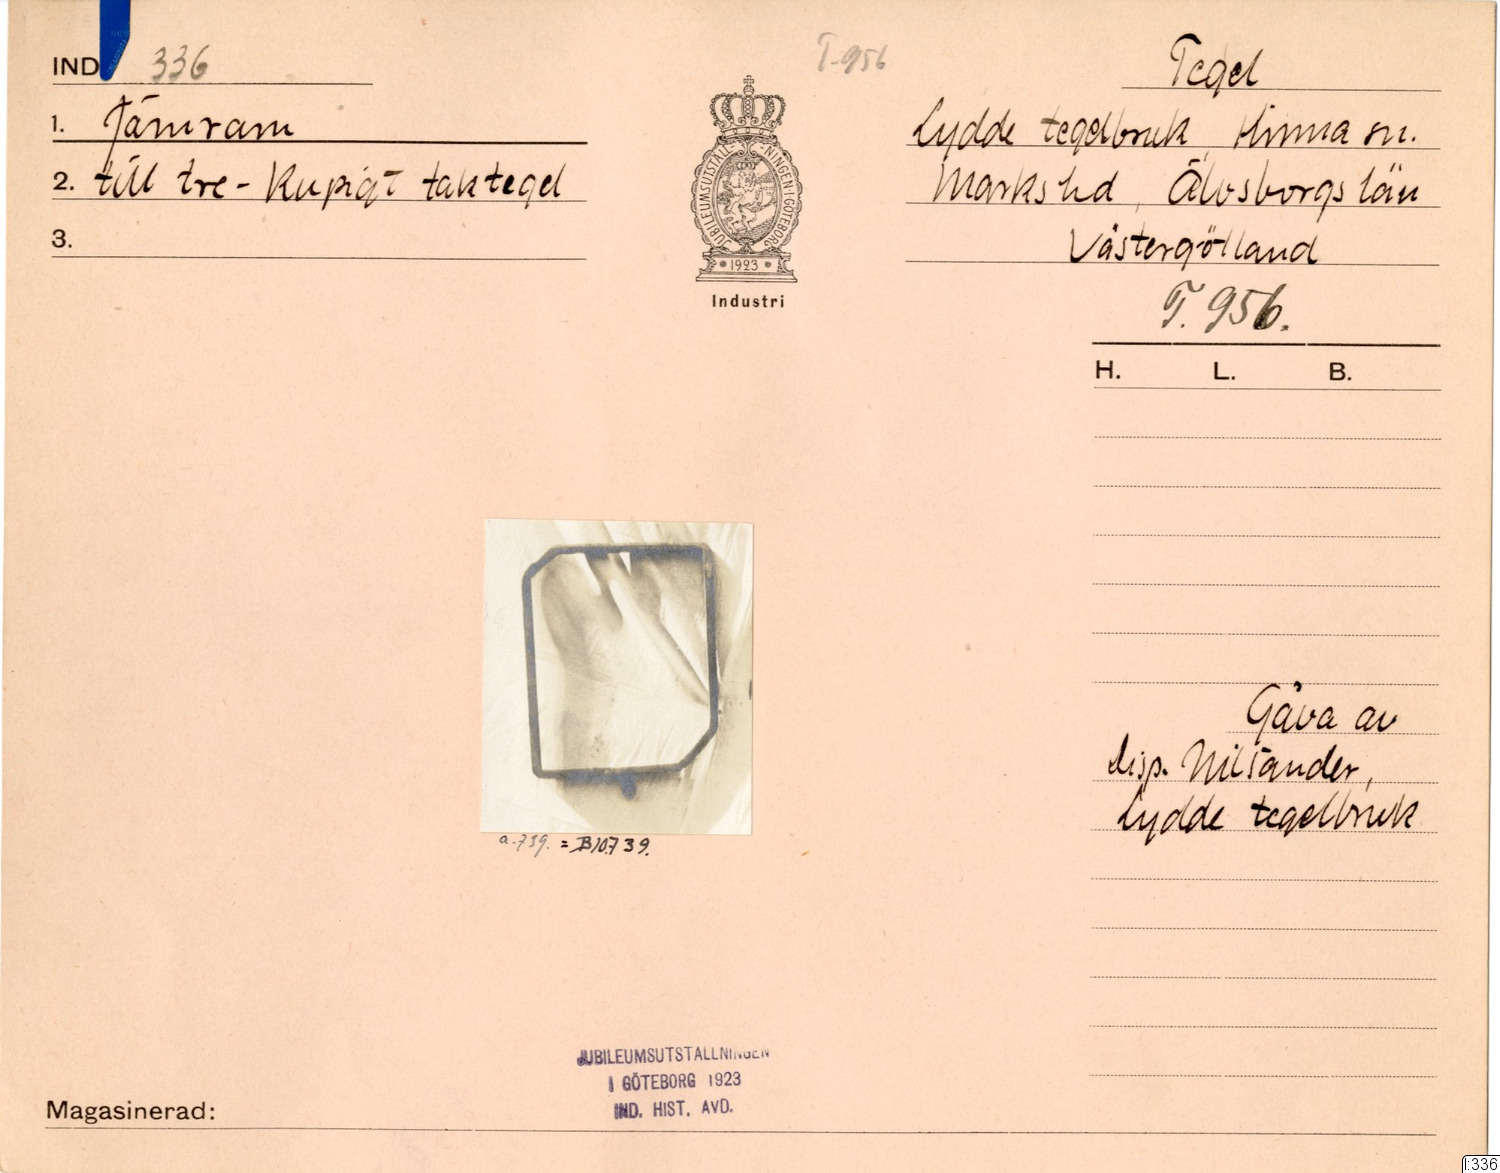 IND 336
T-956
Tegel
1. Järnram
Lydde tegelbruk, Kinna sn.
2. till tre-kupigt taktegel
Marks hd, Älvsborgs län
3.
Västergötland
JUBILEUMSUTSTÄLLNINGEN I GÖTEBORG
1923
Industri
T. 956.
H. L. B.
Gåva av
disp. Nilsander,
Lydde tegelbruk
a.739. = B10739.
JUBILEUMSUTSTÄLLNINGEN
I GÖTEBORG 1923
IND. HIST. AVD.
Magasinerad:
I:336